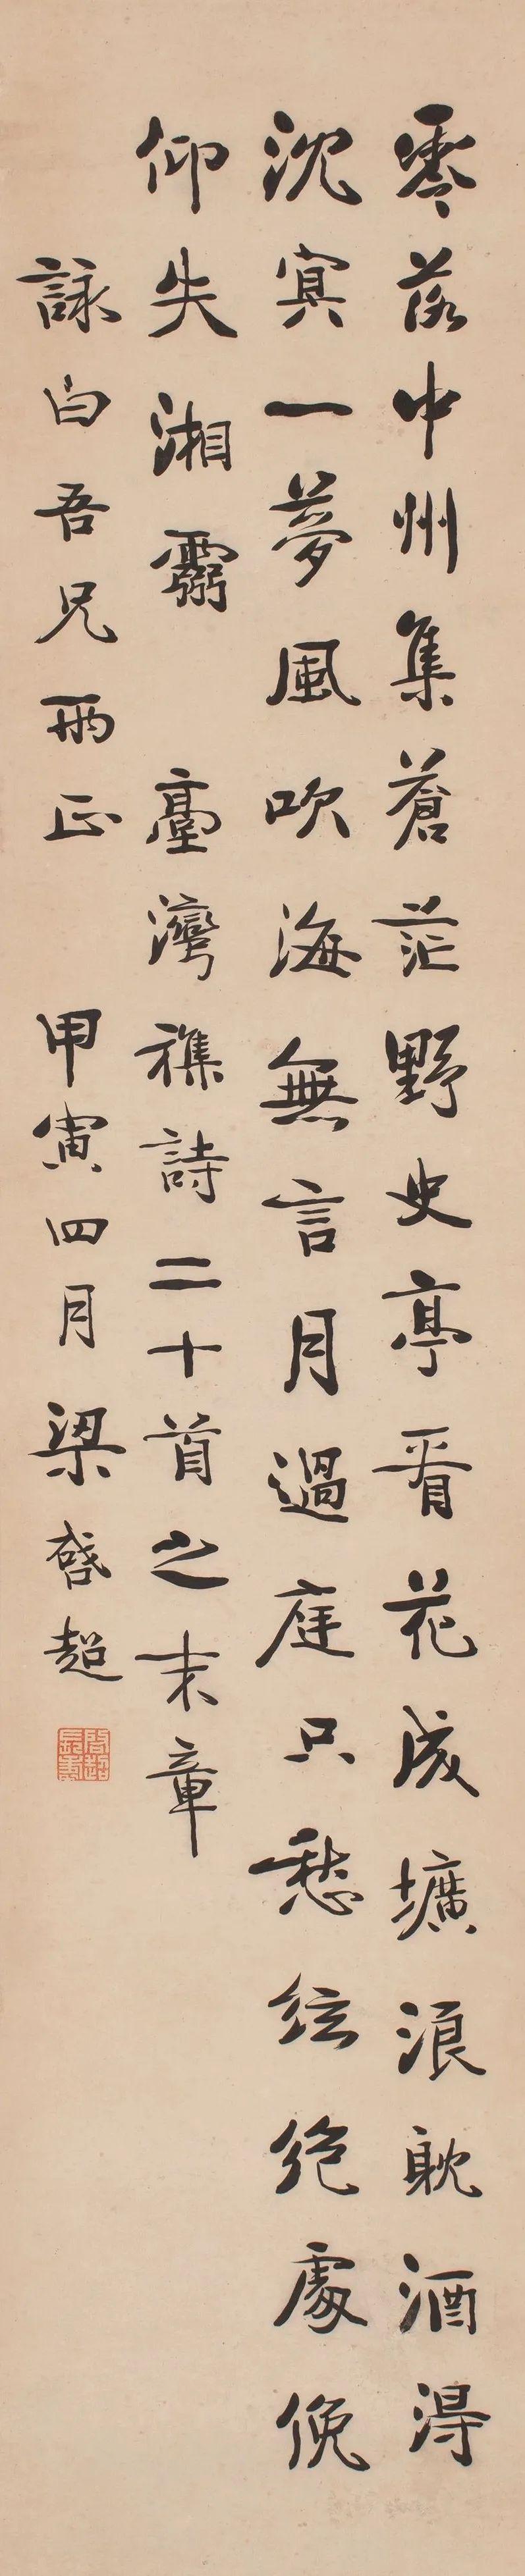 零落中州集蒼茫野史亭看花成壙浪躭酒得
沈冥一夢風吹海無言月過庭只愁絃絕處俛
仰失湘靈 臺灣雜詩二十首之末章
詠白吾兄兩正 甲寅四月梁啓超
啓超長壽